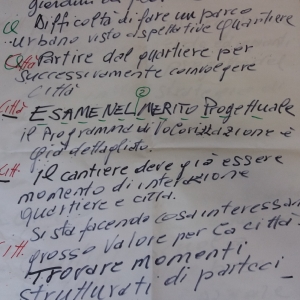 Q Difficoltà di fare un parco
urbano visto aspettative quartiere
Città Partire dal quartiere per
successivamente coinvolgere
città
2
Città – ESAME NEL MERITO Progettuale
il Programma di
già dettagliato.
Citt. – Il cantiere deve già essere
momento di interazione
quartiere e città.
Citt. Si sta facendo cosa interessan
grosso valore per la città
Trovare momenti
strutturati di parteci-